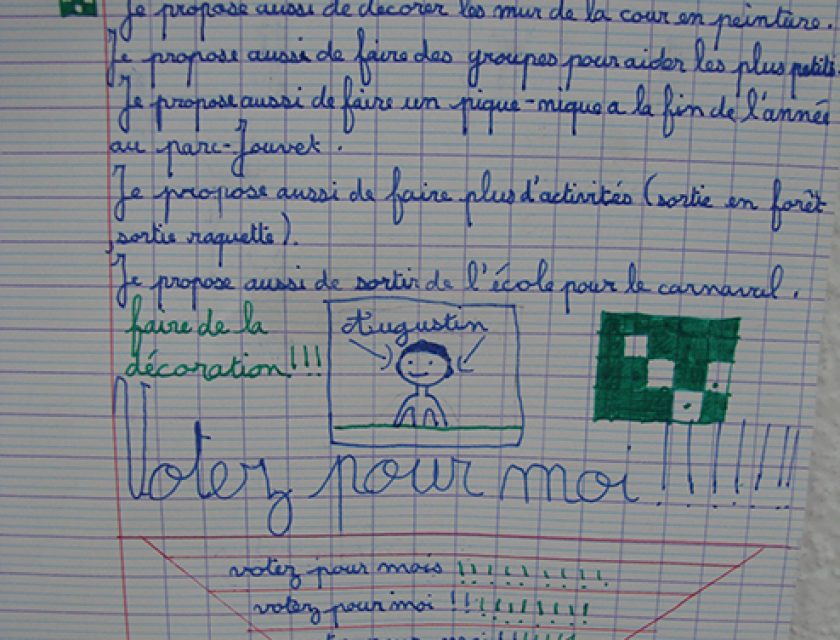 Je propose aussi de décorer les mur de la cour en peinture.
Je propose aussi de faire des groupes pour aider les plus petits.
Je propose aussi de faire un pique-nique a la fin de l'année
au parc-Jouvet.
Je propose aussi de faire plus d'activités (sortie en forêt
,sortie raquette).
Je propose aussi de sortir de l'école pour le carnaval.
faire de la
décoration!!!
Augustin
Votez pour moi!!!!!!!
votez pour mois !!!!!!!!
votez pour moi !!!!!!!!!
pour moi !!!!!!!